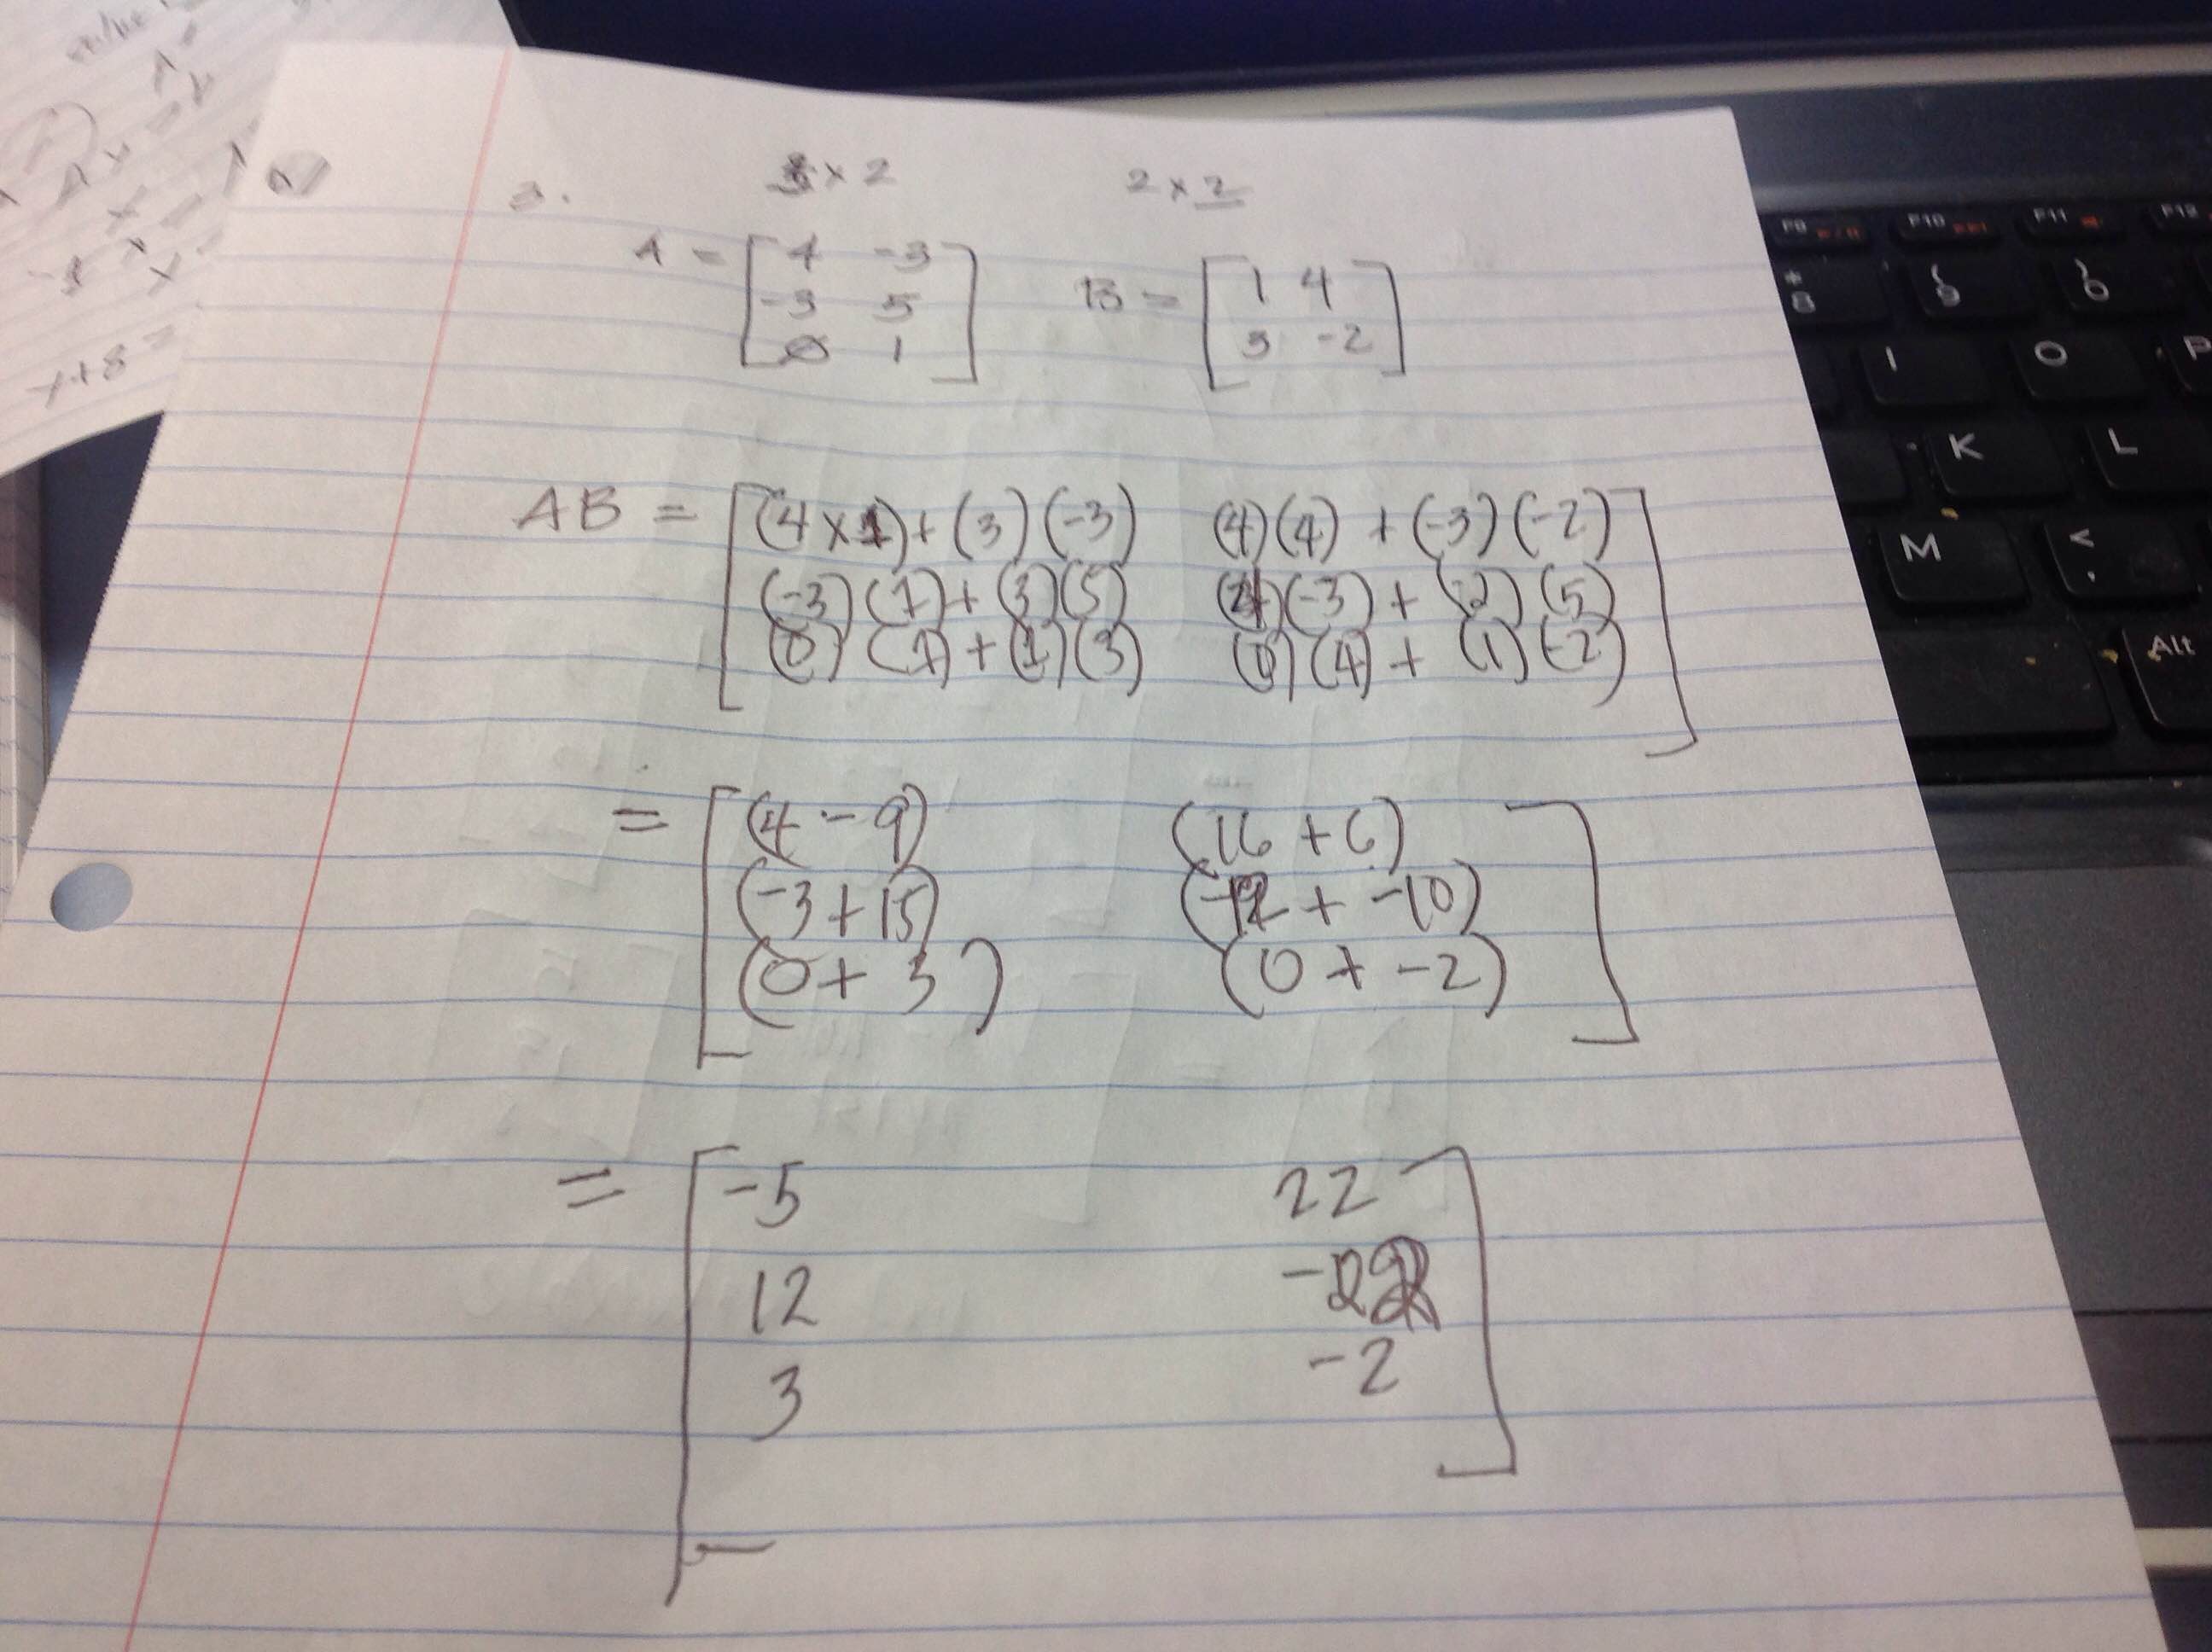 3 x 2 2 x 2
A = [ 4 -3 B = [ 1 4
-3 5 3 -2 ]
0 1 ]
AB = [ (4 x 1) + (3) (-3) (4) (4) + (-3) (-2)
(-3) (1) + (3) (5) (4) (-3) + (-2) (5)
(0) (1) + (1) (3) (0) (4) + (1) (-2) ]
= [ (4 - 9) (16 + 6)
(-3 + 15) (-12 + -10)
(0 + 3) (0 + -2) ]
= [ -5 22
12 -22
3 -2 ]
y+8=
F9 F10 F11 F12
* 8 9 0
I O P
K L
M < ,
Alt